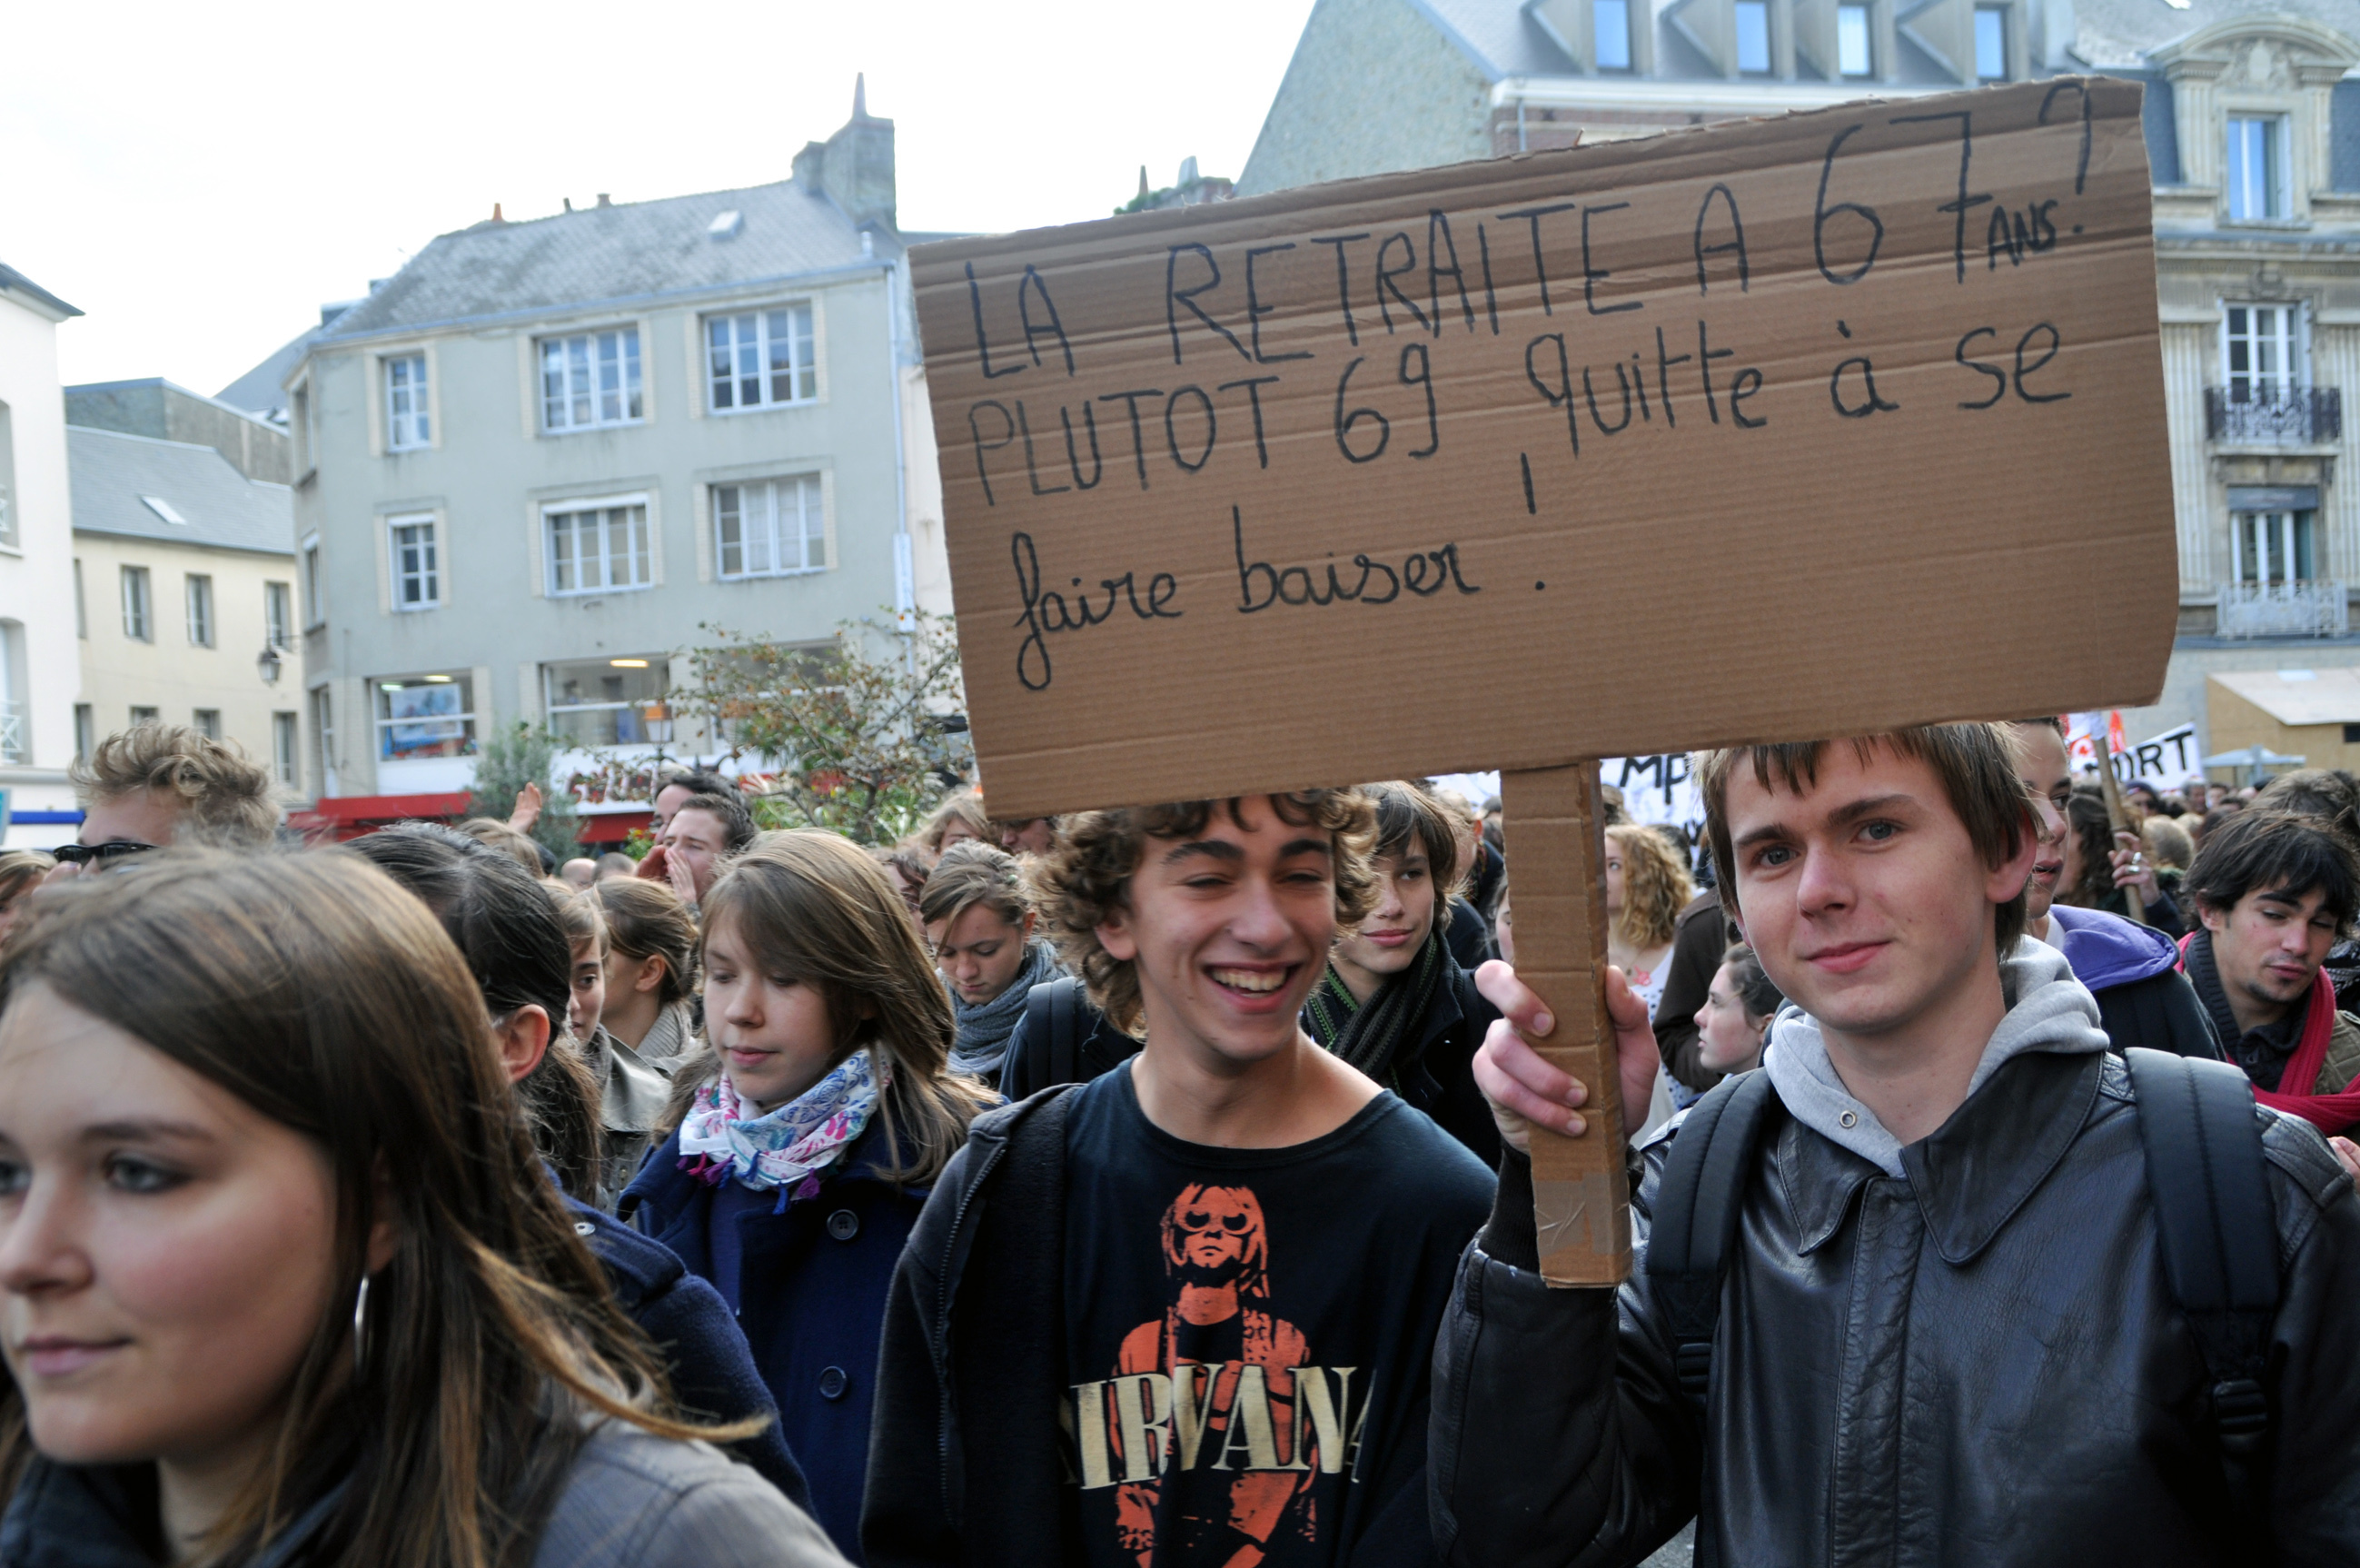 LA RETRAITE A 67 ANS ?
PLUTOT 69, quitte à se
faire baiser !
ORT
MP
NIRVANA